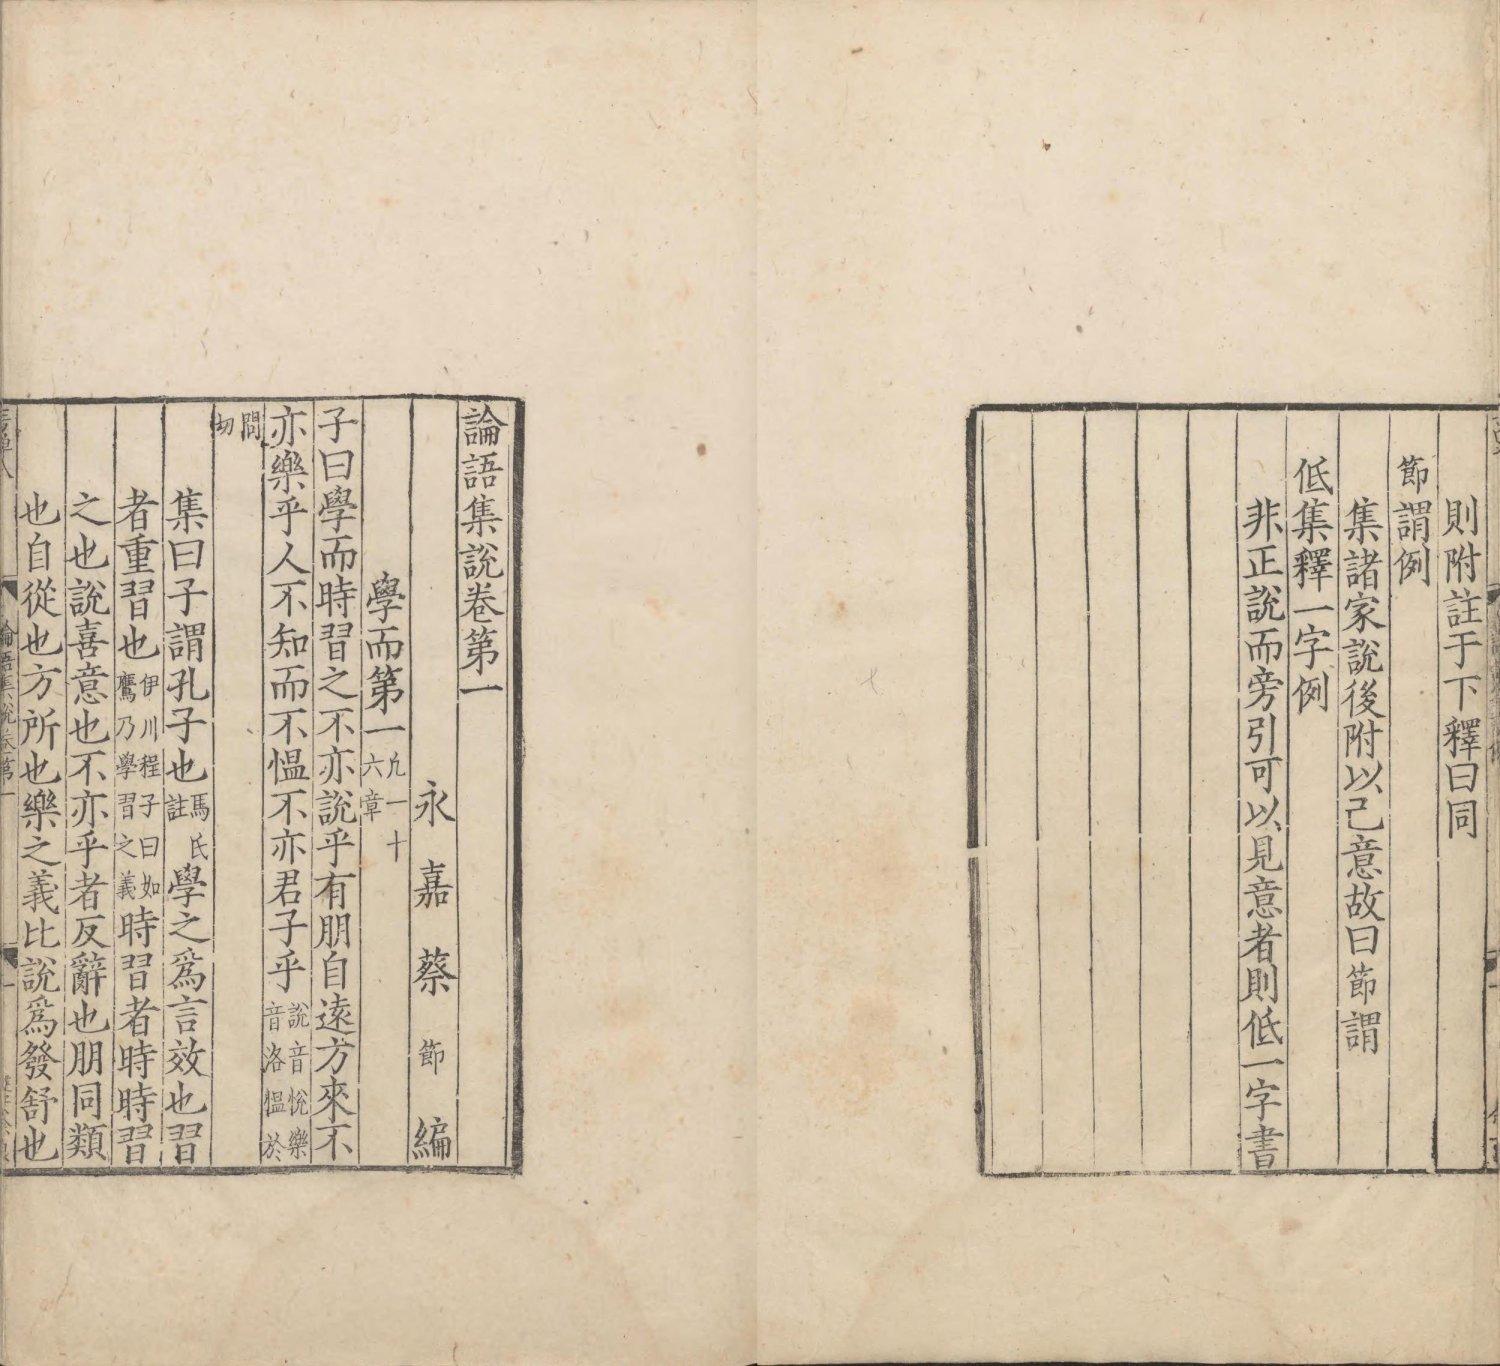 則附註于下釋曰同
節謂例
集諸家說後附以己意故曰節謂
低集釋一字例
非正說而旁引可以見意者則低一字書
論語集說卷第一
永嘉蔡節編
學而第一凡一十六章
子曰學而時習之不亦說乎有朋自遠方來不
亦樂乎人不知而不慍不亦君子乎說音悅樂音洛慍於
問切
集曰子謂孔子也馬氏註學之爲言效也習
者重習也伊川程子曰如鷹乃學習之義時習者時時習
之也說喜意也不亦乎者反辭也朋同類
也自從也方所也樂之義比說爲發舒也
論語集說卷第一